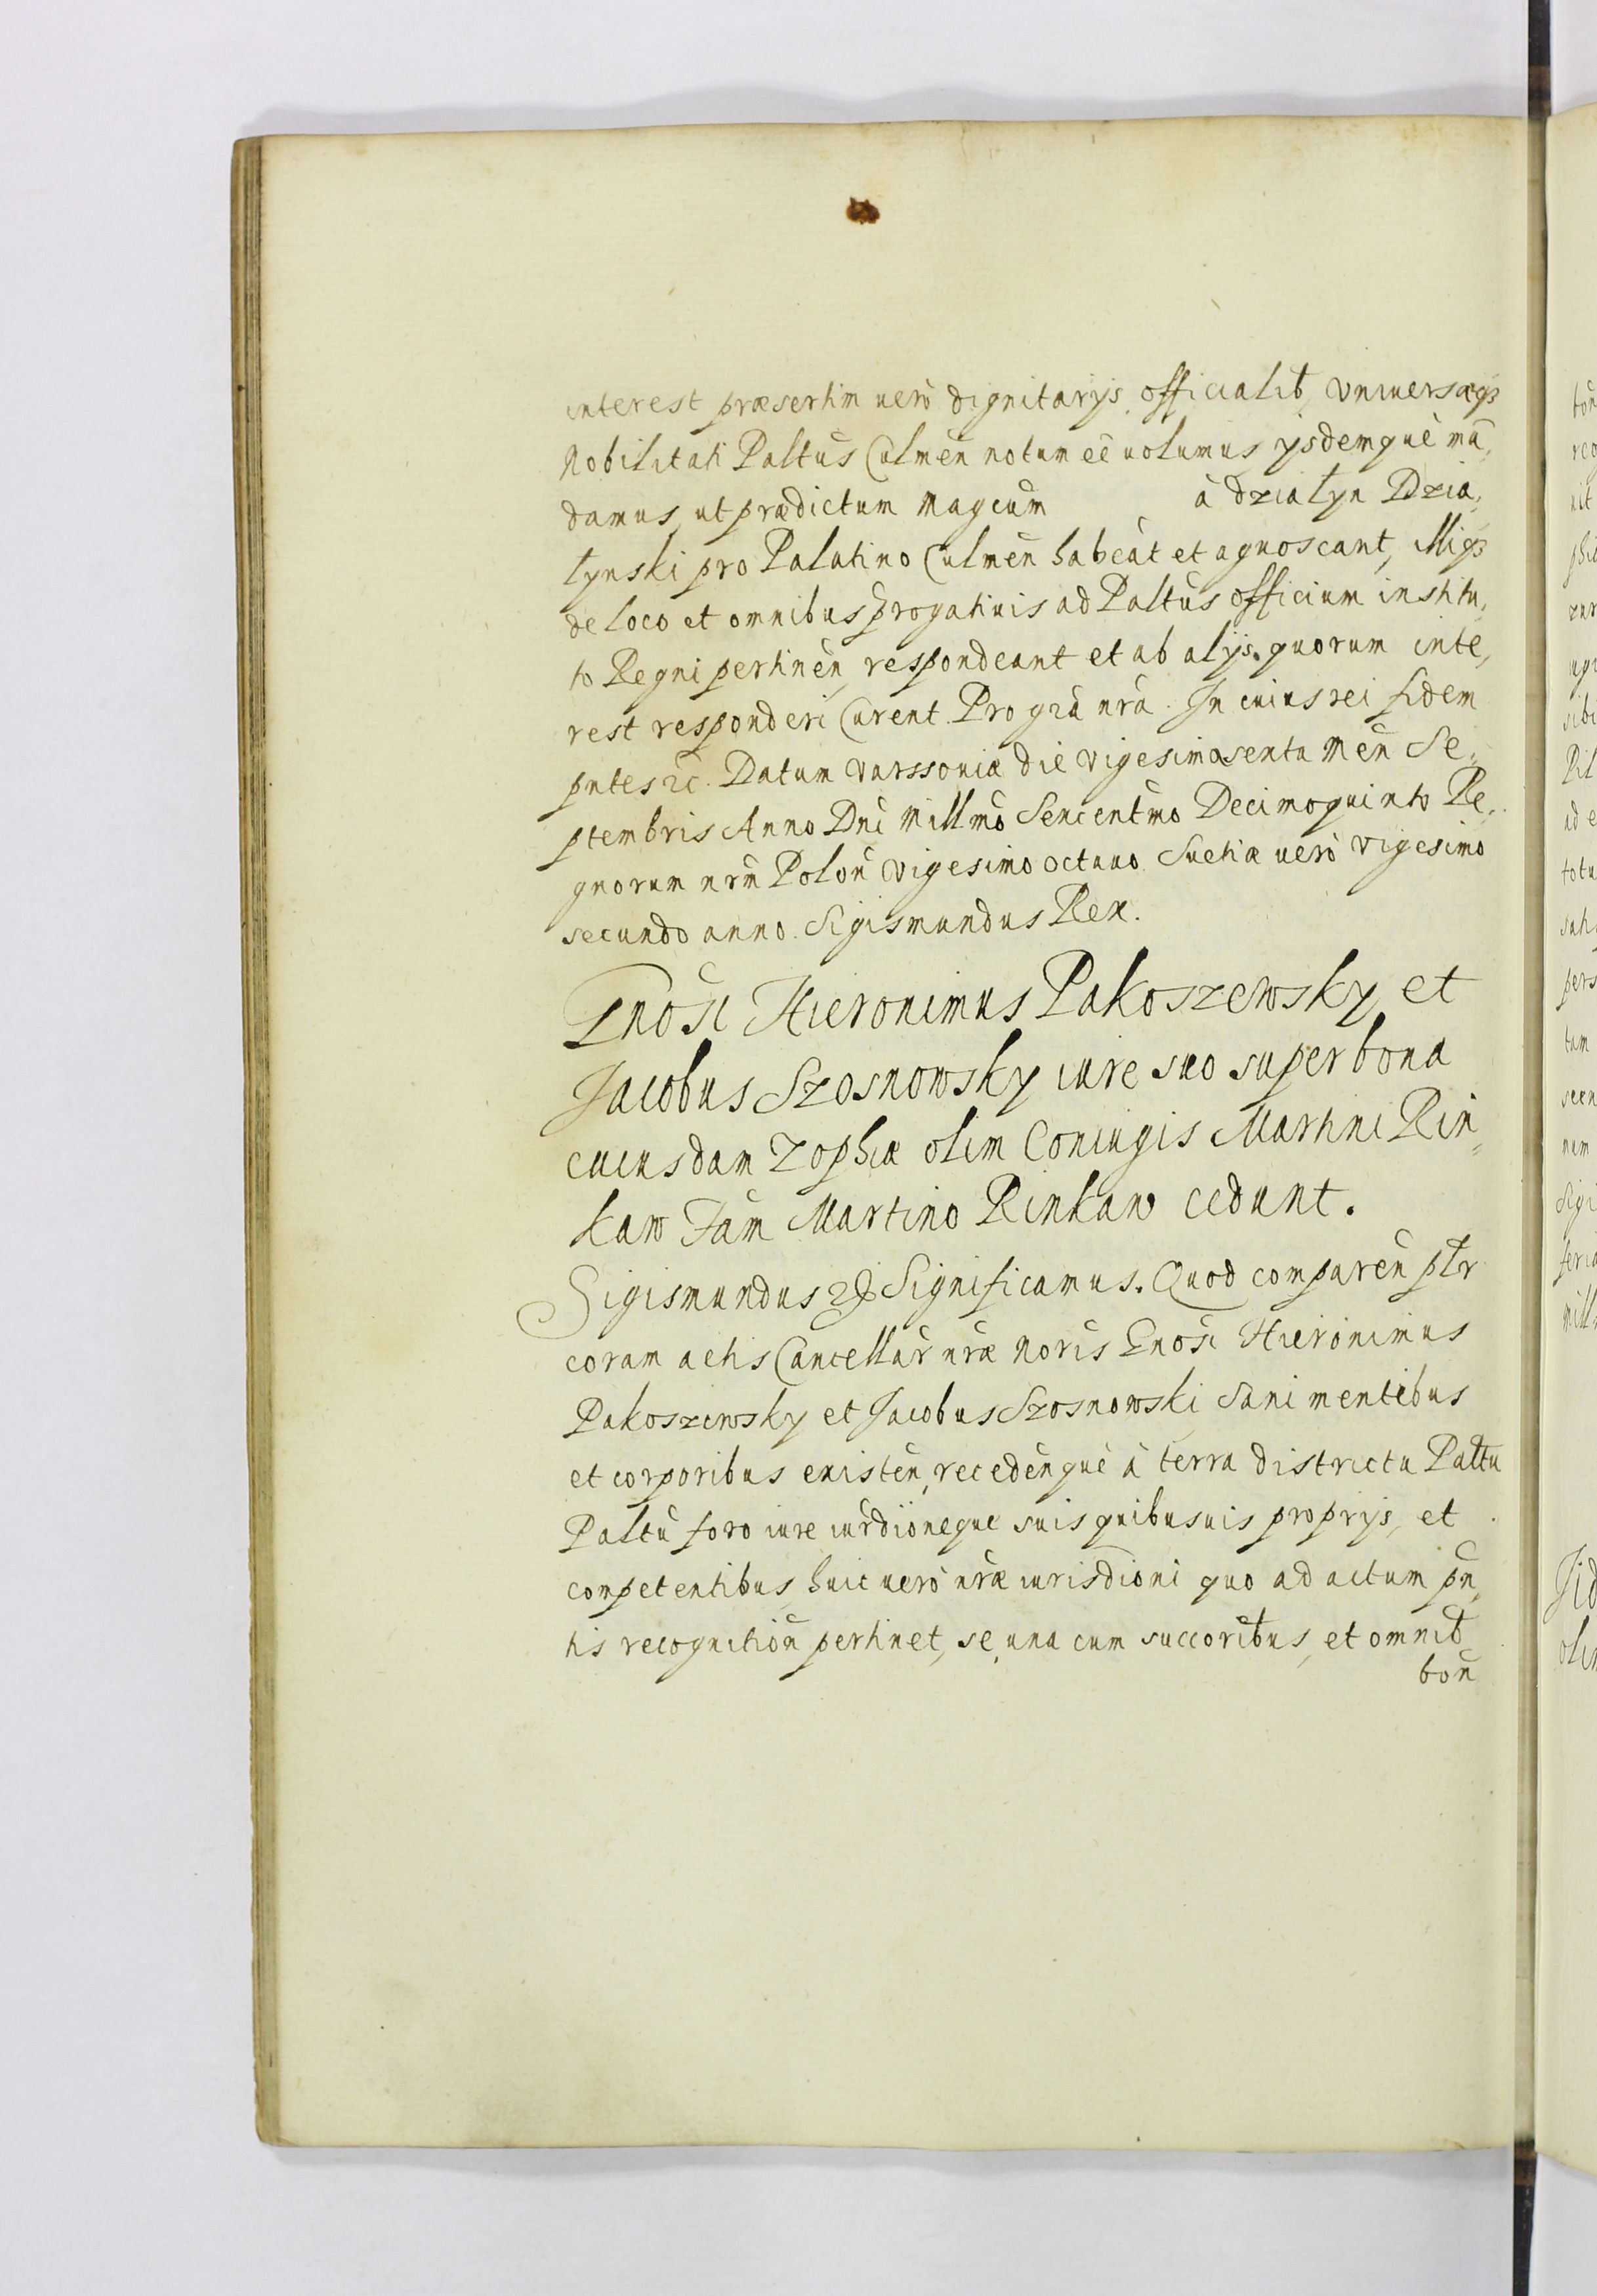 interest præsertim uerò dignitarÿs, officialib, vniuersæqȝ
Nobilitati Paltus Culmen notum eē uolumus ÿsdemquè mā,
damus, ut prædictum Magcum à Działyn Dzia,
łynski pro Palatino Culmen habeat et agnoscant, Illiqȝ
de loco et omnibus progatiuis ad Paltus officium institu,
to Regni pertinen, respondeant et ab alÿs quorum inte,
rest responderi Curent. Pro gra nra. In cuius rei fidem
pntes &c. Datum Varssouiæ die Vigesimasexta Men Se,
ptembris Anno Dni Millmo Sexcentmo Decimoquinto Re,
gnorum nrm Polon Vigesimo octauo Suetiæ uerò Vigesimo
secundo anno. Sigismundus Rex.
Gnosi Hieronimus Pakoszewsky et
Jacobus Szosnowsky iure suo super bona
cuiusdam Zophiæ olim Coniugis Martini Rin,
kaw Fam Martino Rinkaw cedunt.
Sigismundus &c Significamus. Quod comparen pltr
coram actis Cancellar nræ Noris Gnosi Hieronimus
Pakoszewsky et Jacobus Szosnowski, Sani mentibus
et corporibus existen, recedenquè à terra districtu Paltu
Paltu foro iure iurdioneque suis quibusuis proprÿs, et
competentibus, huic uerò nræ iurisdioni quo ad actum pn,
tis recognition pertinet, se, una cum succoribus, et omnib
bon